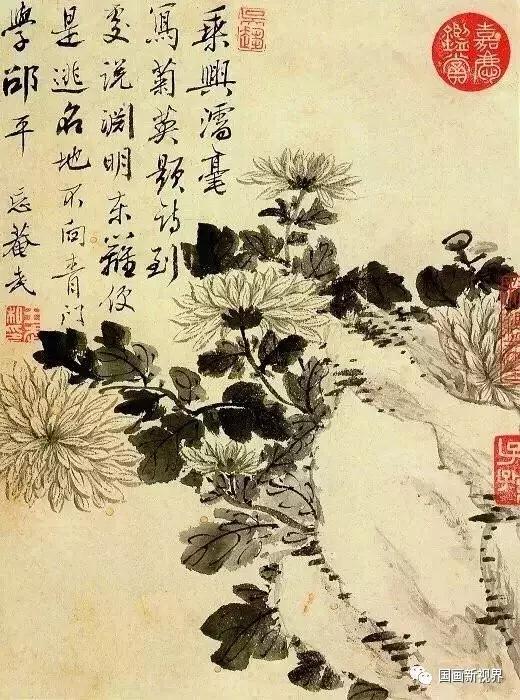 乘興濡毫
寫菊英題詩到
處說淵明東籬便
是逃名地不向青門
學邵平 忘菴武
嘉慶
鑑賞
国画新视界